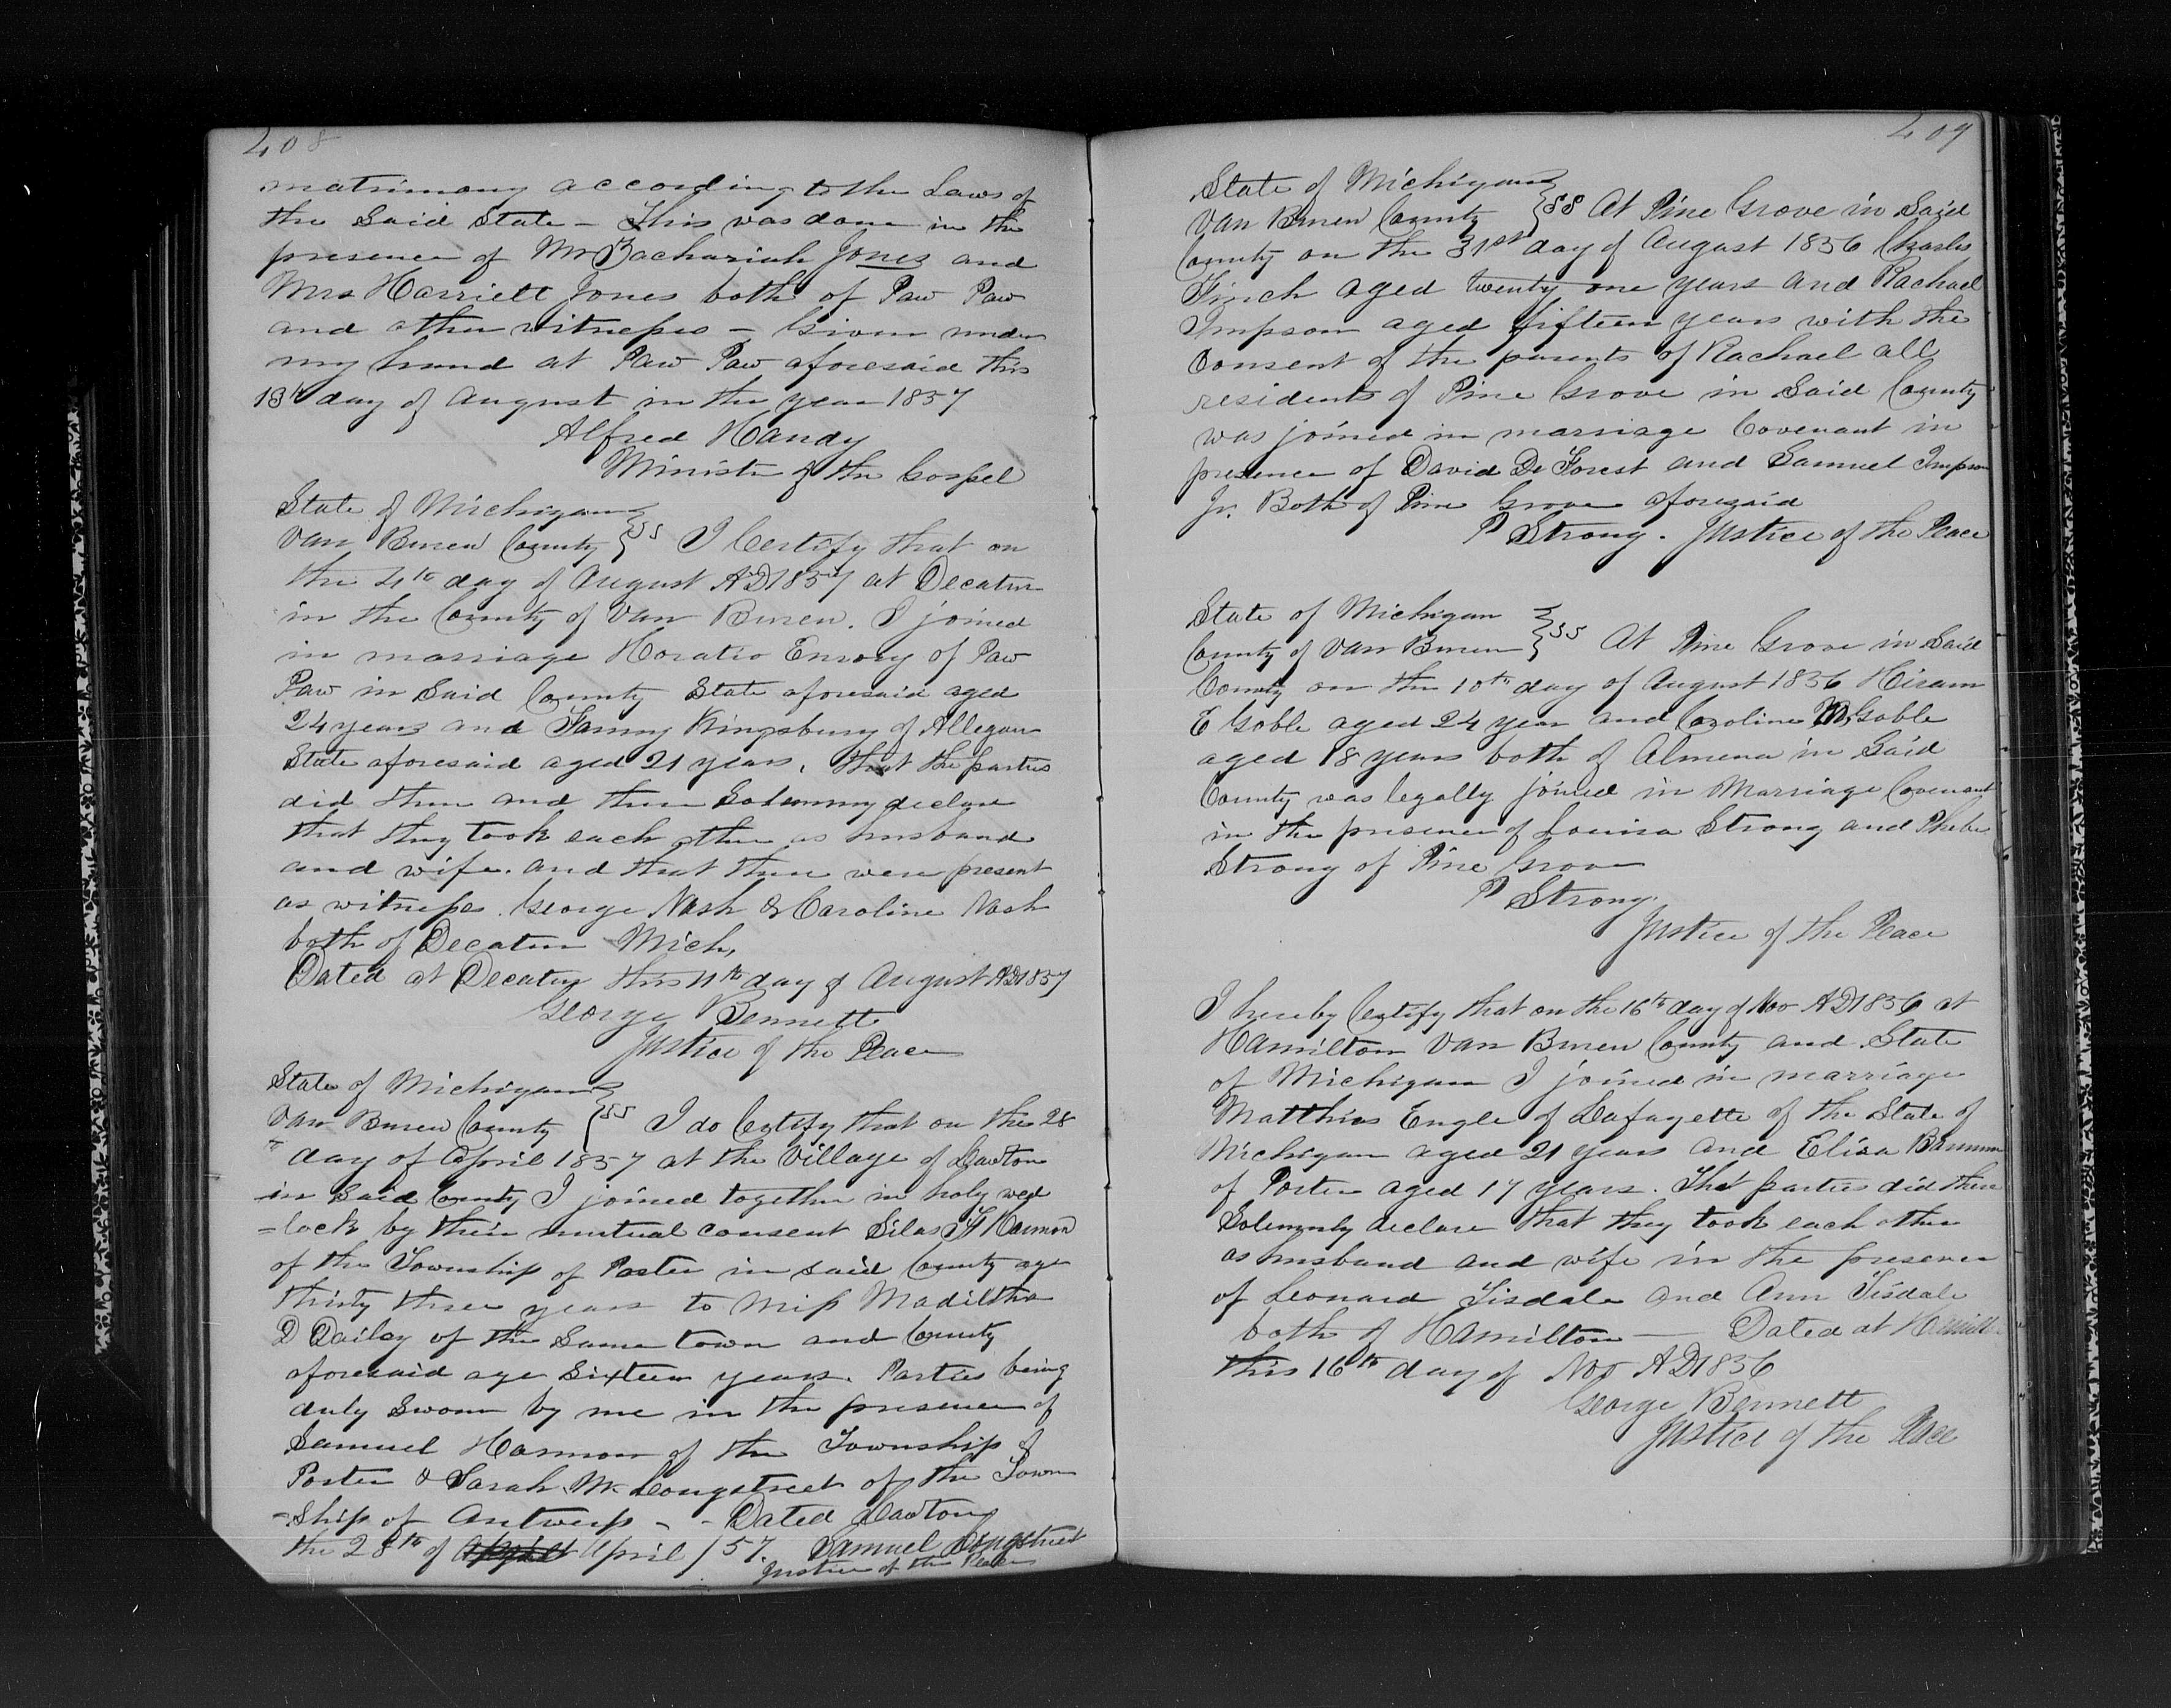 408
matrimony according to the Laws of
the Said State - This was done in the
presence of Mr Zachariah Jones and
Mrs Harriett Jones both of Paw Paw
and other witnesses - Given under
my hand at Paw Paw aforesaid this
13th day of August in the year 1857
Alfred Handy
Minister of the Gospel
State of Michigan
Van Buren County } SS I Certify that on
the 4th day of August AD 1857 at Decatur
in the County of Van Buren. I joined
in marriage Horatio Emory of Paw
Paw in Said County State aforesaid aged
24 years and Fanny Kingsbury of Allegan
State aforesaid aged 21 years, that the parties
did then and there Solemnly declare
that they took each other as husband
and wife. and that there were present
as witnesses. George Nash & Caroline Nash
both of Decatur Mich,
Dated at Decatur this 11th day of August AD 1857
George Bennett
Justice of the Peace
State of Michigan
Van Buren County } SS I do Certify that on the 28
th day of April 1857 at the Village of Lawton
in Said County I joined together in holy wed
=lock by their mutual consent Silas F Harmon
of the Township of Porter in said County age
thirty three years to Miss Madiltha
D Dailey of the Same town and County
aforesaid age Sixteen years. Parties being
duly Sworn by me in the presence of
Samuel Harmon of the Township of
Porter & Sarah M. Longstreet of the Town
-Ship of Antwerp - - Dated Lawton
the 28th of April /57. Samuel Longstreet
Justice of the Peace
409
State of Michigan
Van Buren County } SS At Pine Grove in Said
County on the 31st day of August 1856 Charles
Finch aged twenty one years and Rachael
Impson aged fifteen years with the
Consent of the parents of Rachael all
residents of Pine Grove in Said County
was joined in marriage Covenant in
presence of David De Forest and Samuel Impson
Jr. Both of Pine Grove aforesaid
P Strong. Justice of the Peace
State of Michigan
County of Van Buren } SS At Pine Grove in Said
County on the 10th day of August 1856 Hiram
E Goble aged 24 year and Caroline M Goble
aged 18 years both of Almena in Said
County was legally joined in Marriage Covenant
in the presence of Louisa Strong and Phebe
Strong of Pine Grove
P Strong.
Justice of the Peace
I hereby Certify that on the 16th day of Nov AD 1856 at
Hamilton Van Buren County and State
of Michigan I joined in marriage
Matthias Engle of Lafayette of the State of
Michigan aged 21 years and Eliza
of Porter aged 17 years. That parties did then
Solemnly declare that they took each other
as husband and wife in the presence
of Leonard Tisdale and Ann Tisdale
both of Hamilton — Dated at Hamilton
this 16th day of Nov AD 1856
George Bennett
Justice of the Peace